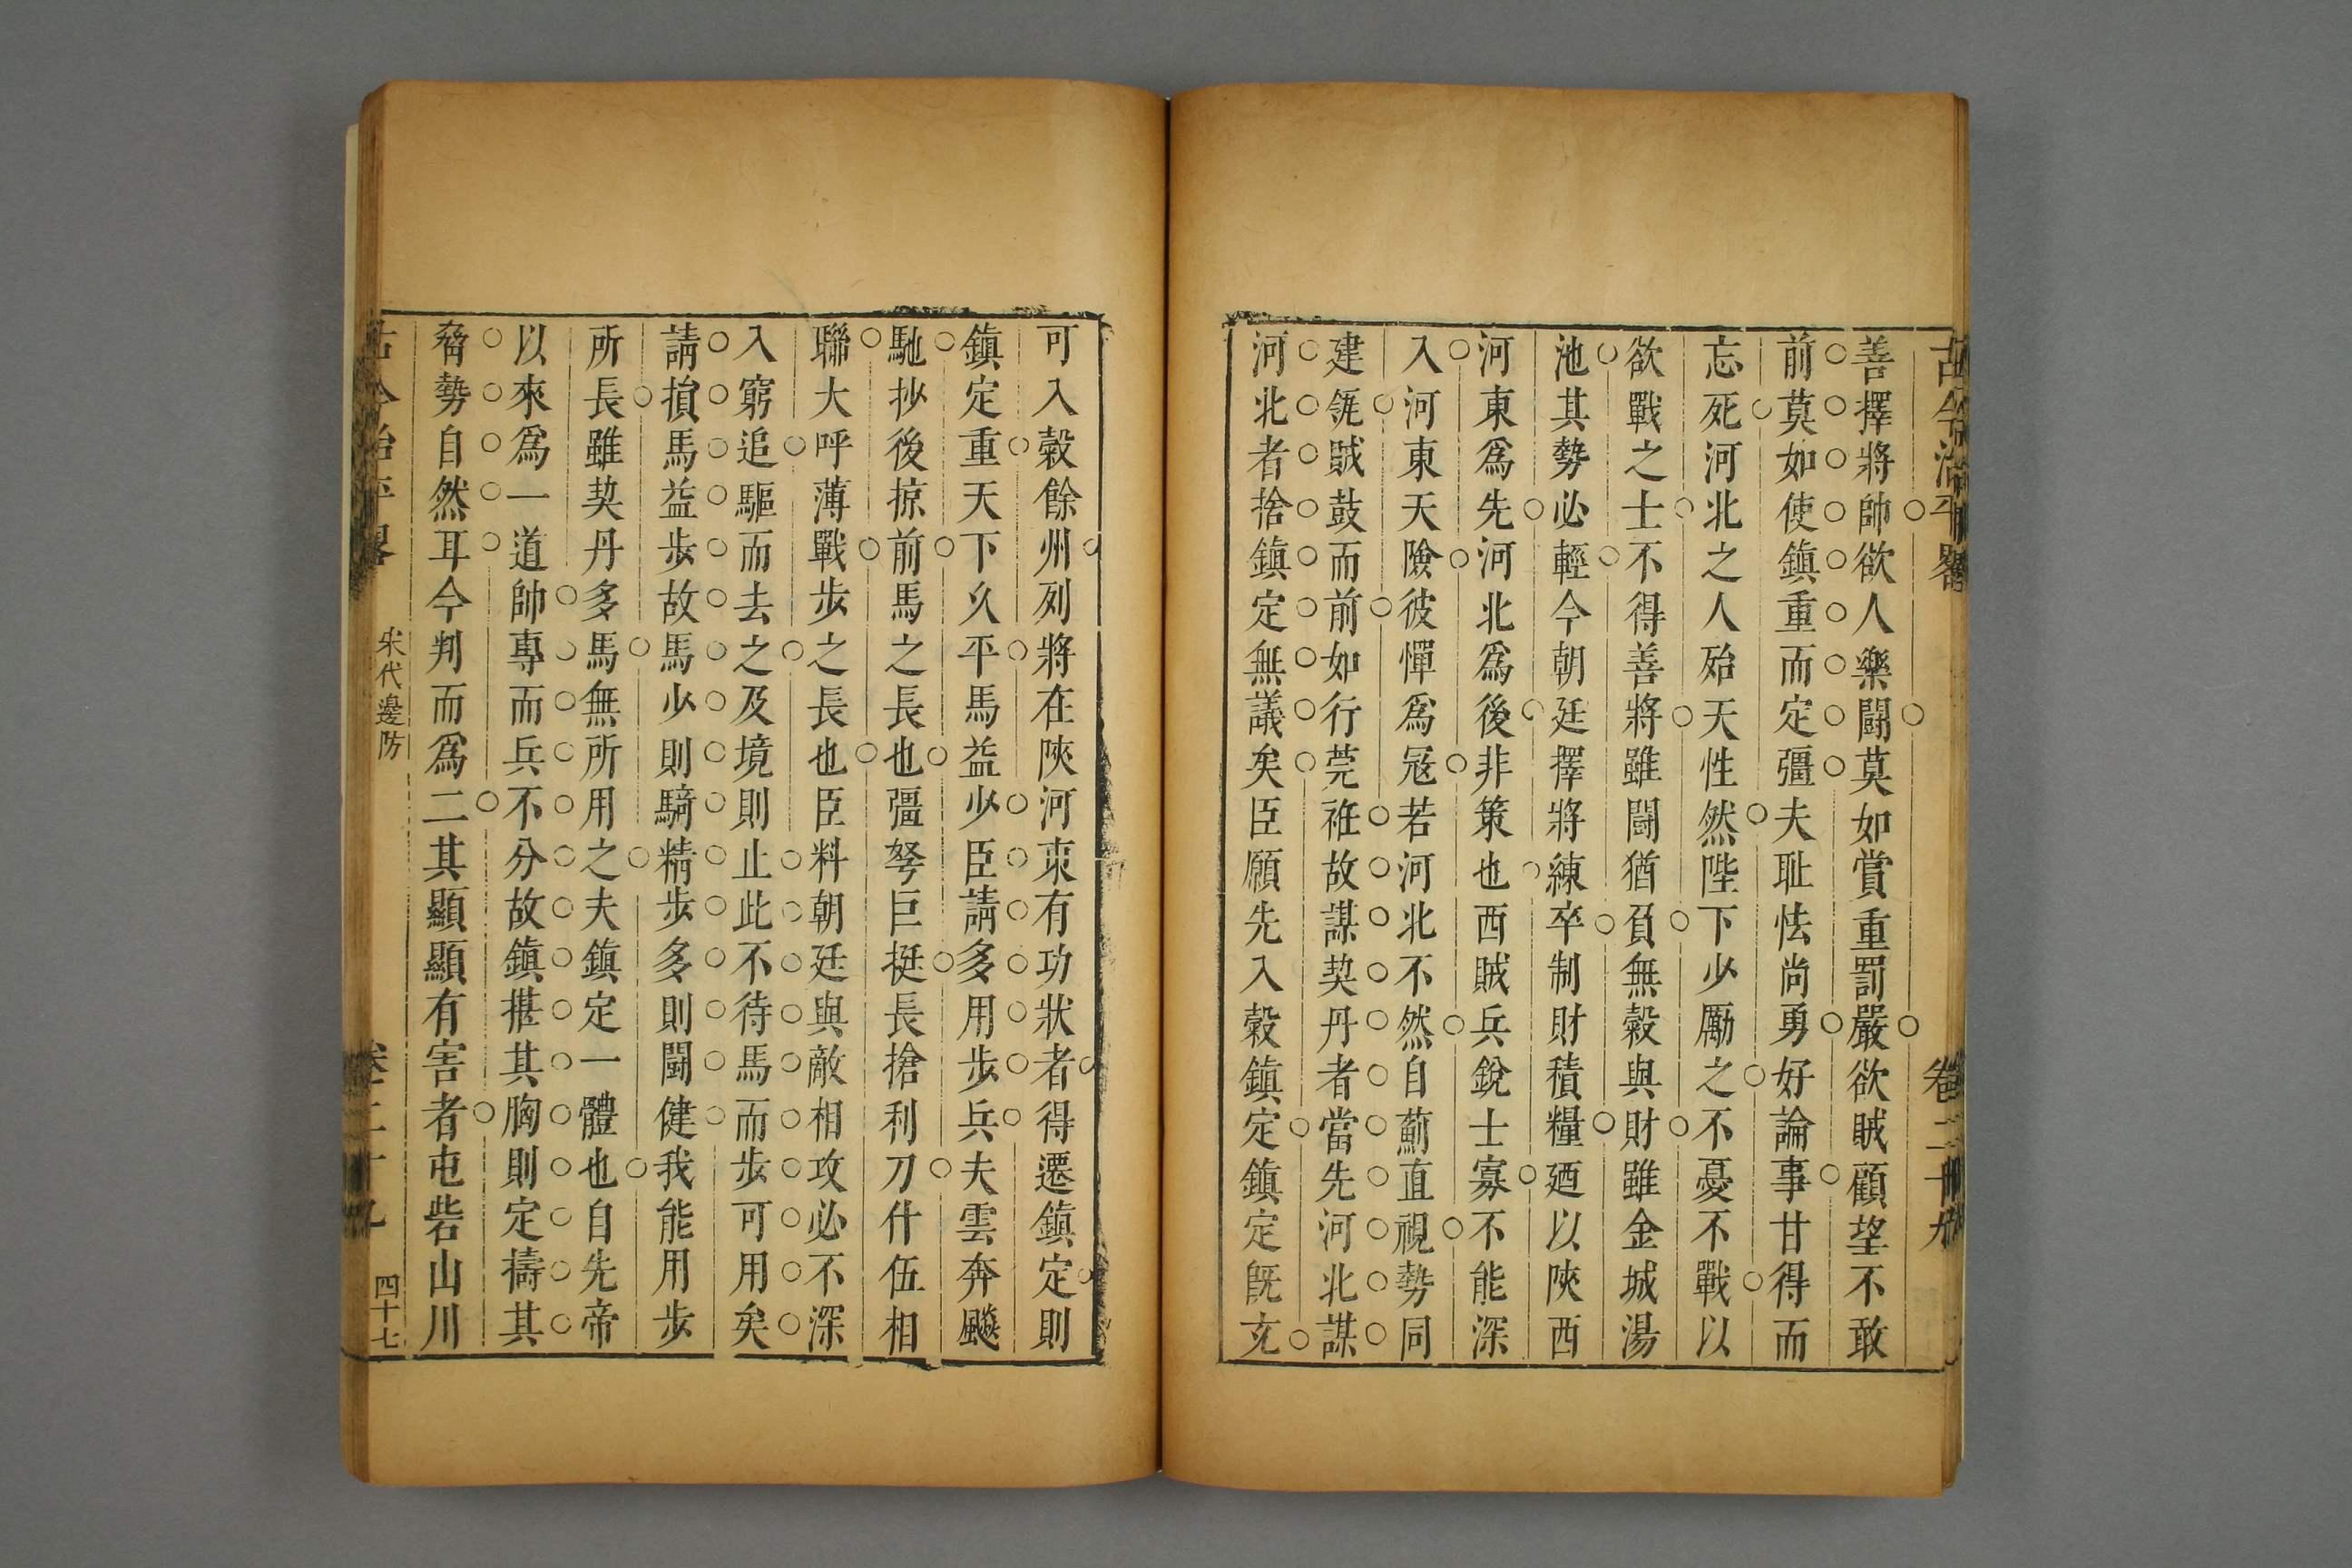 古今治平畧 卷二十九
善擇將帥欲人樂鬪莫如賞重罰嚴欲賊顧望不敢
前莫如使鎮重而定彊夫耻怯尚勇好論事甘得而
忘死河北之人殆天性然陛下少厲之不憂不戰以
欲戰之士不得善將雖鬪猶負無穀與財雖金城湯
池其勢必輕今朝廷擇將練卒制財積糧廼以陝西
河東爲先河北爲後非策也西賊兵銳士寡不能深
入河東天險彼憚爲冦若河北不然自薊直視勢同
建瓴賊鼓而前如行莞袵故謀契丹者當先河北謀
河北者捨鎮定無議矣臣願先入穀鎮定鎮定既充
可入穀餘州列將在陝河東有功狀者得遷鎮定則
鎮定重天下久平馬益少臣請多用步兵夫雲奔飈
馳抄後掠前馬之長也彊弩巨挺長搶利刀什伍相
聯大呼薄戰步之長也臣料朝廷與敵相攻必不深
入窮追驅而去之及境則止此不待馬而步可用矣
請損馬益步故馬少則騎精步多則鬪健我能用步
所長雖契丹多馬無所用之夫鎮定一體也自先帝
以來爲一道帥專而兵不分故鎮揕其胸則定擣其
脅勢自然耳今判而爲二其顯顯有害者屯砦山川
古今治平畧 宋代邊防 卷二十九 四十七